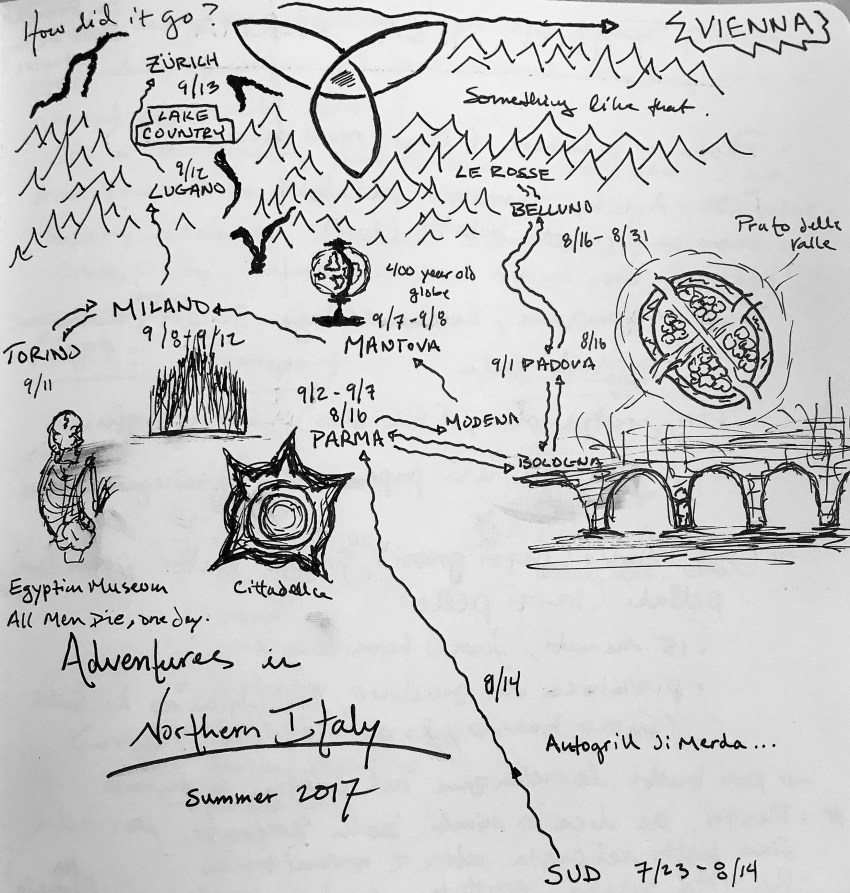 How did it go?
VIENNA
ZÜRICH
9/13
LAKE
COUNTRY
Something like that.
9/12
LUGANO
LE ROSSE
BELLUNO
8/16 - 8/31
Prato della
valle
400 year old
globe
MILANO
9/8 - 9/12
9/7 - 9/8
MANTOVA
TORINO
9/11
8/16
9/1 PADOVA
9/2 - 9/7
8/16
PARMA
MODENA
BOLOGNA
Egyptian Museum
All Men Die, one day.
Cittadella
Adventures in
Northern Italy
Summer 2017
8/14
Autogrill di Merda...
SUD 7/23 - 8/14